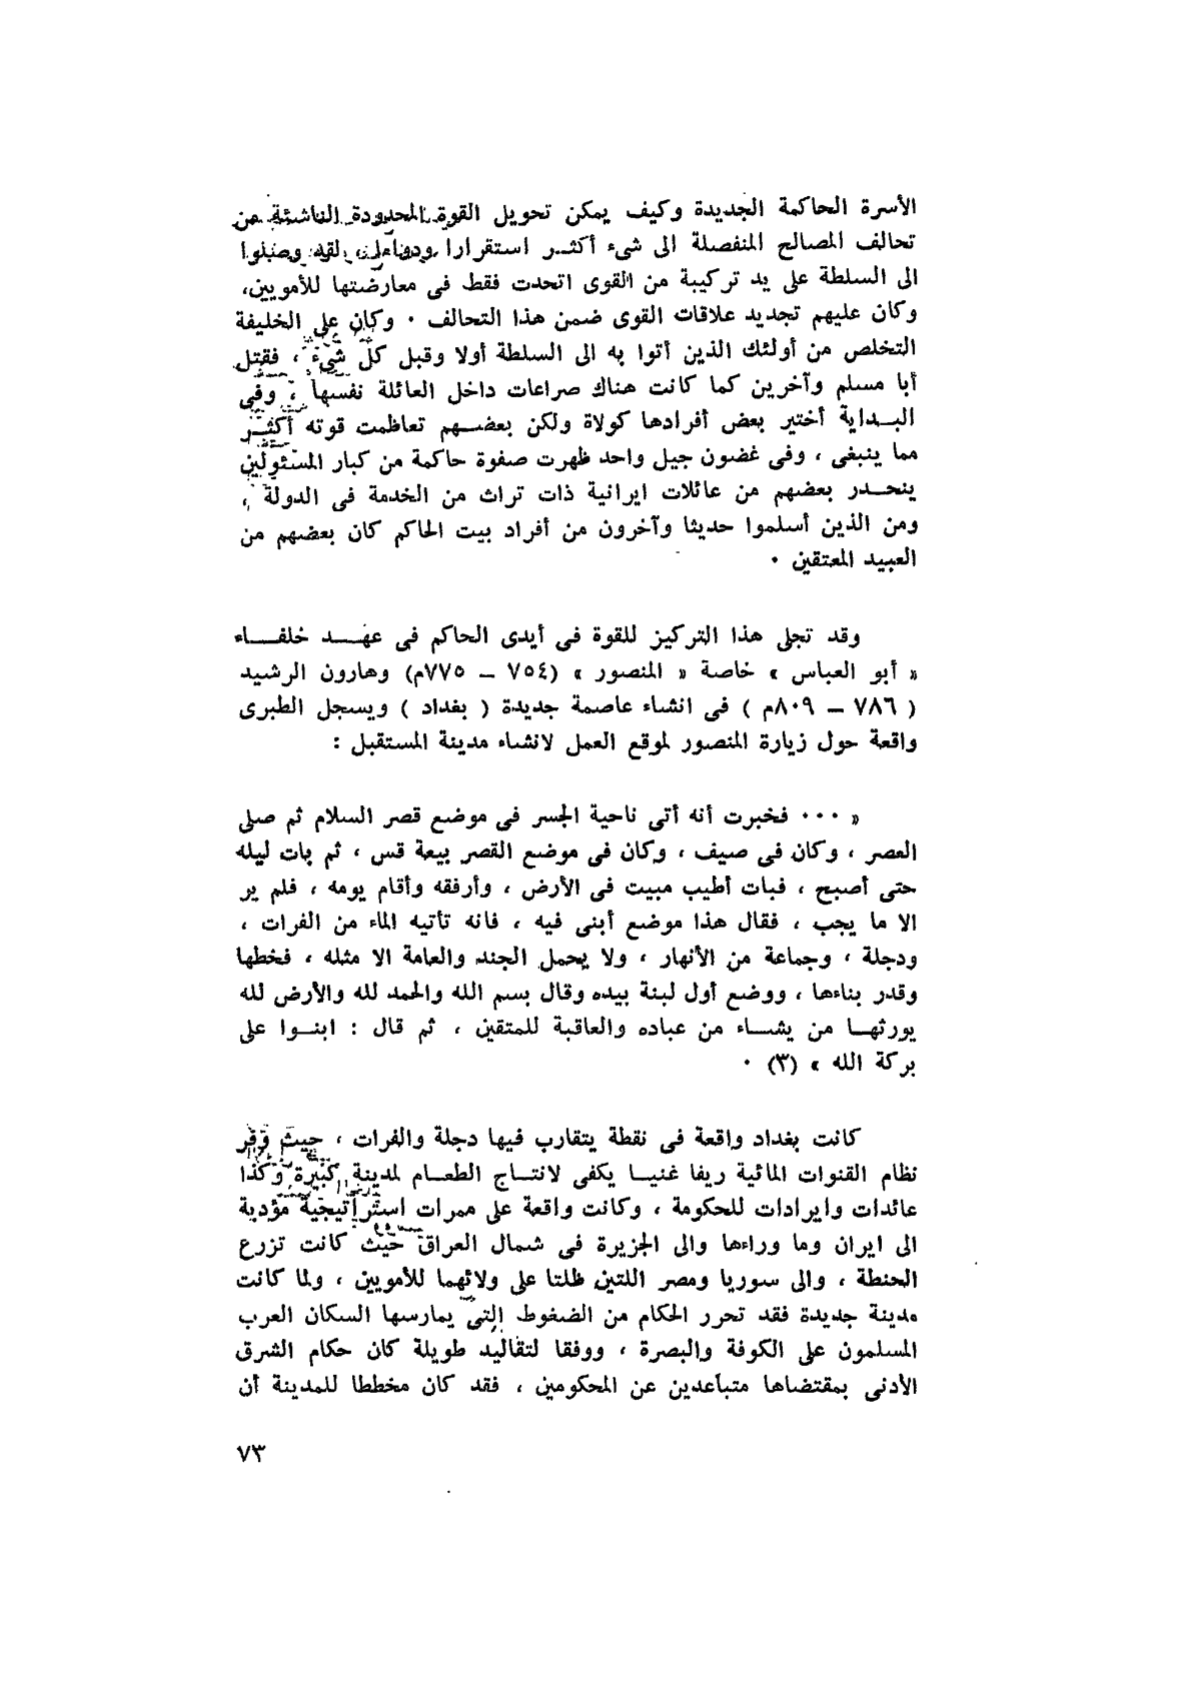 الأسرة الحاكمة الجديدة وكيف يمكن تحويل القوة المحدودة الناشئة من
تحالف المصالح المنفصلة الى شىء أكثــر استقرارا ودواما، لقد وصلوا
الى السلطة على يد تركيبة من القوى اتحدت فقط فى معارضتها للأمويين،
وكان عليهم تجديد علاقات القوى ضمن هذا التحالف ٠ وكان على الخليفة
التخلص من أولئك الذين أتوا به الى السلطة أولا وقبل كل شىء ، فقتل
أبا مسلم وآخرين كما كانت هناك صراعات داخل العائلة نفسها ، وفى
البــداية أختير بعض أفرادها كولاة ولكن بعضــهم تعاظمت قوته أكثــر
مما ينبغى ، وفى غضون جيل واحد ظهرت صفوة حاكمة من كبار المسئولين
ينحــدر بعضهم من عائلات ايرانية ذات تراث من الخدمة فى الدولة ،
ومن الذين أسلموا حديثا وآخرون من أفراد بيت الحاكم كان بعضهم من
العبيد المعتقين ٠
وقد تجلى هذا التركيز للقوة فى أيدى الحاكم فى عهــد خلفــاء
« أبو العباس » خاصة « المنصور » (٧٥٤ ــ ٧٧٥م) وهارون الرشيد
( ٧٨٦ ــ ٨٠٩م ) فى انشاء عاصمة جديدة ( بغداد ) ويسجل الطبرى
واقعة حول زيارة المنصور لموقع العمل لانشاء مدينة المستقبل :
« ٠٠٠ فخبرت أنه أتى ناحية الجسر فى موضع قصر السلام ثم صلى
العصر ، وكان فى صيف ، وكان فى موضع القصر بيعة قس ، ثم بات ليله
حتى أصبح ، فبات أطيب مبيت فى الأرض ، وأرفقه وأقام يومه ، فلم ير
الا ما يجب ، فقال هذا موضع أبنى فيه ، فانه تأتيه الماء من الفرات ،
ودجلة ، وجماعة من الأنهار ، ولا يحمل الجند والعامة الا مثله ، فخطها
وقدر بناءها ، ووضع أول لبنة بيده وقال بسم الله والحمد لله والأرض لله
يورثهــا من يشــاء من عباده والعاقبة للمتقين ، ثم قال : ابنــوا على
بركة الله » (٣) ٠
كانت بغداد واقعة فى نقطة يتقارب فيها دجلة والفرات ، حيث وفر
نظام القنوات المائية ريفا غنيــا يكفى لانتــاج الطعــام لمدينة كبيرة وكذا
عائدات وايرادات للحكومة ، وكانت واقعة على ممرات استراتيجية مؤدية
الى ايران وما وراءها والى الجزيرة فى شمال العراق حيث كانت تزرع
الحنطة ، والى سوريا ومصر اللتين ظلتا على ولائهما للأمويين ، ولما كانت
مدينة جديدة فقد تحرر الحكام من الضغوط التى يمارسها السكان العرب
المسلمون على الكوفة والبصرة ، ووفقا لتقاليد طويلة كان حكام الشرق
الأدنى بمقتضاها متباعدين عن المحكومين ، فقد كان مخططا للمدينة أن
٧٣